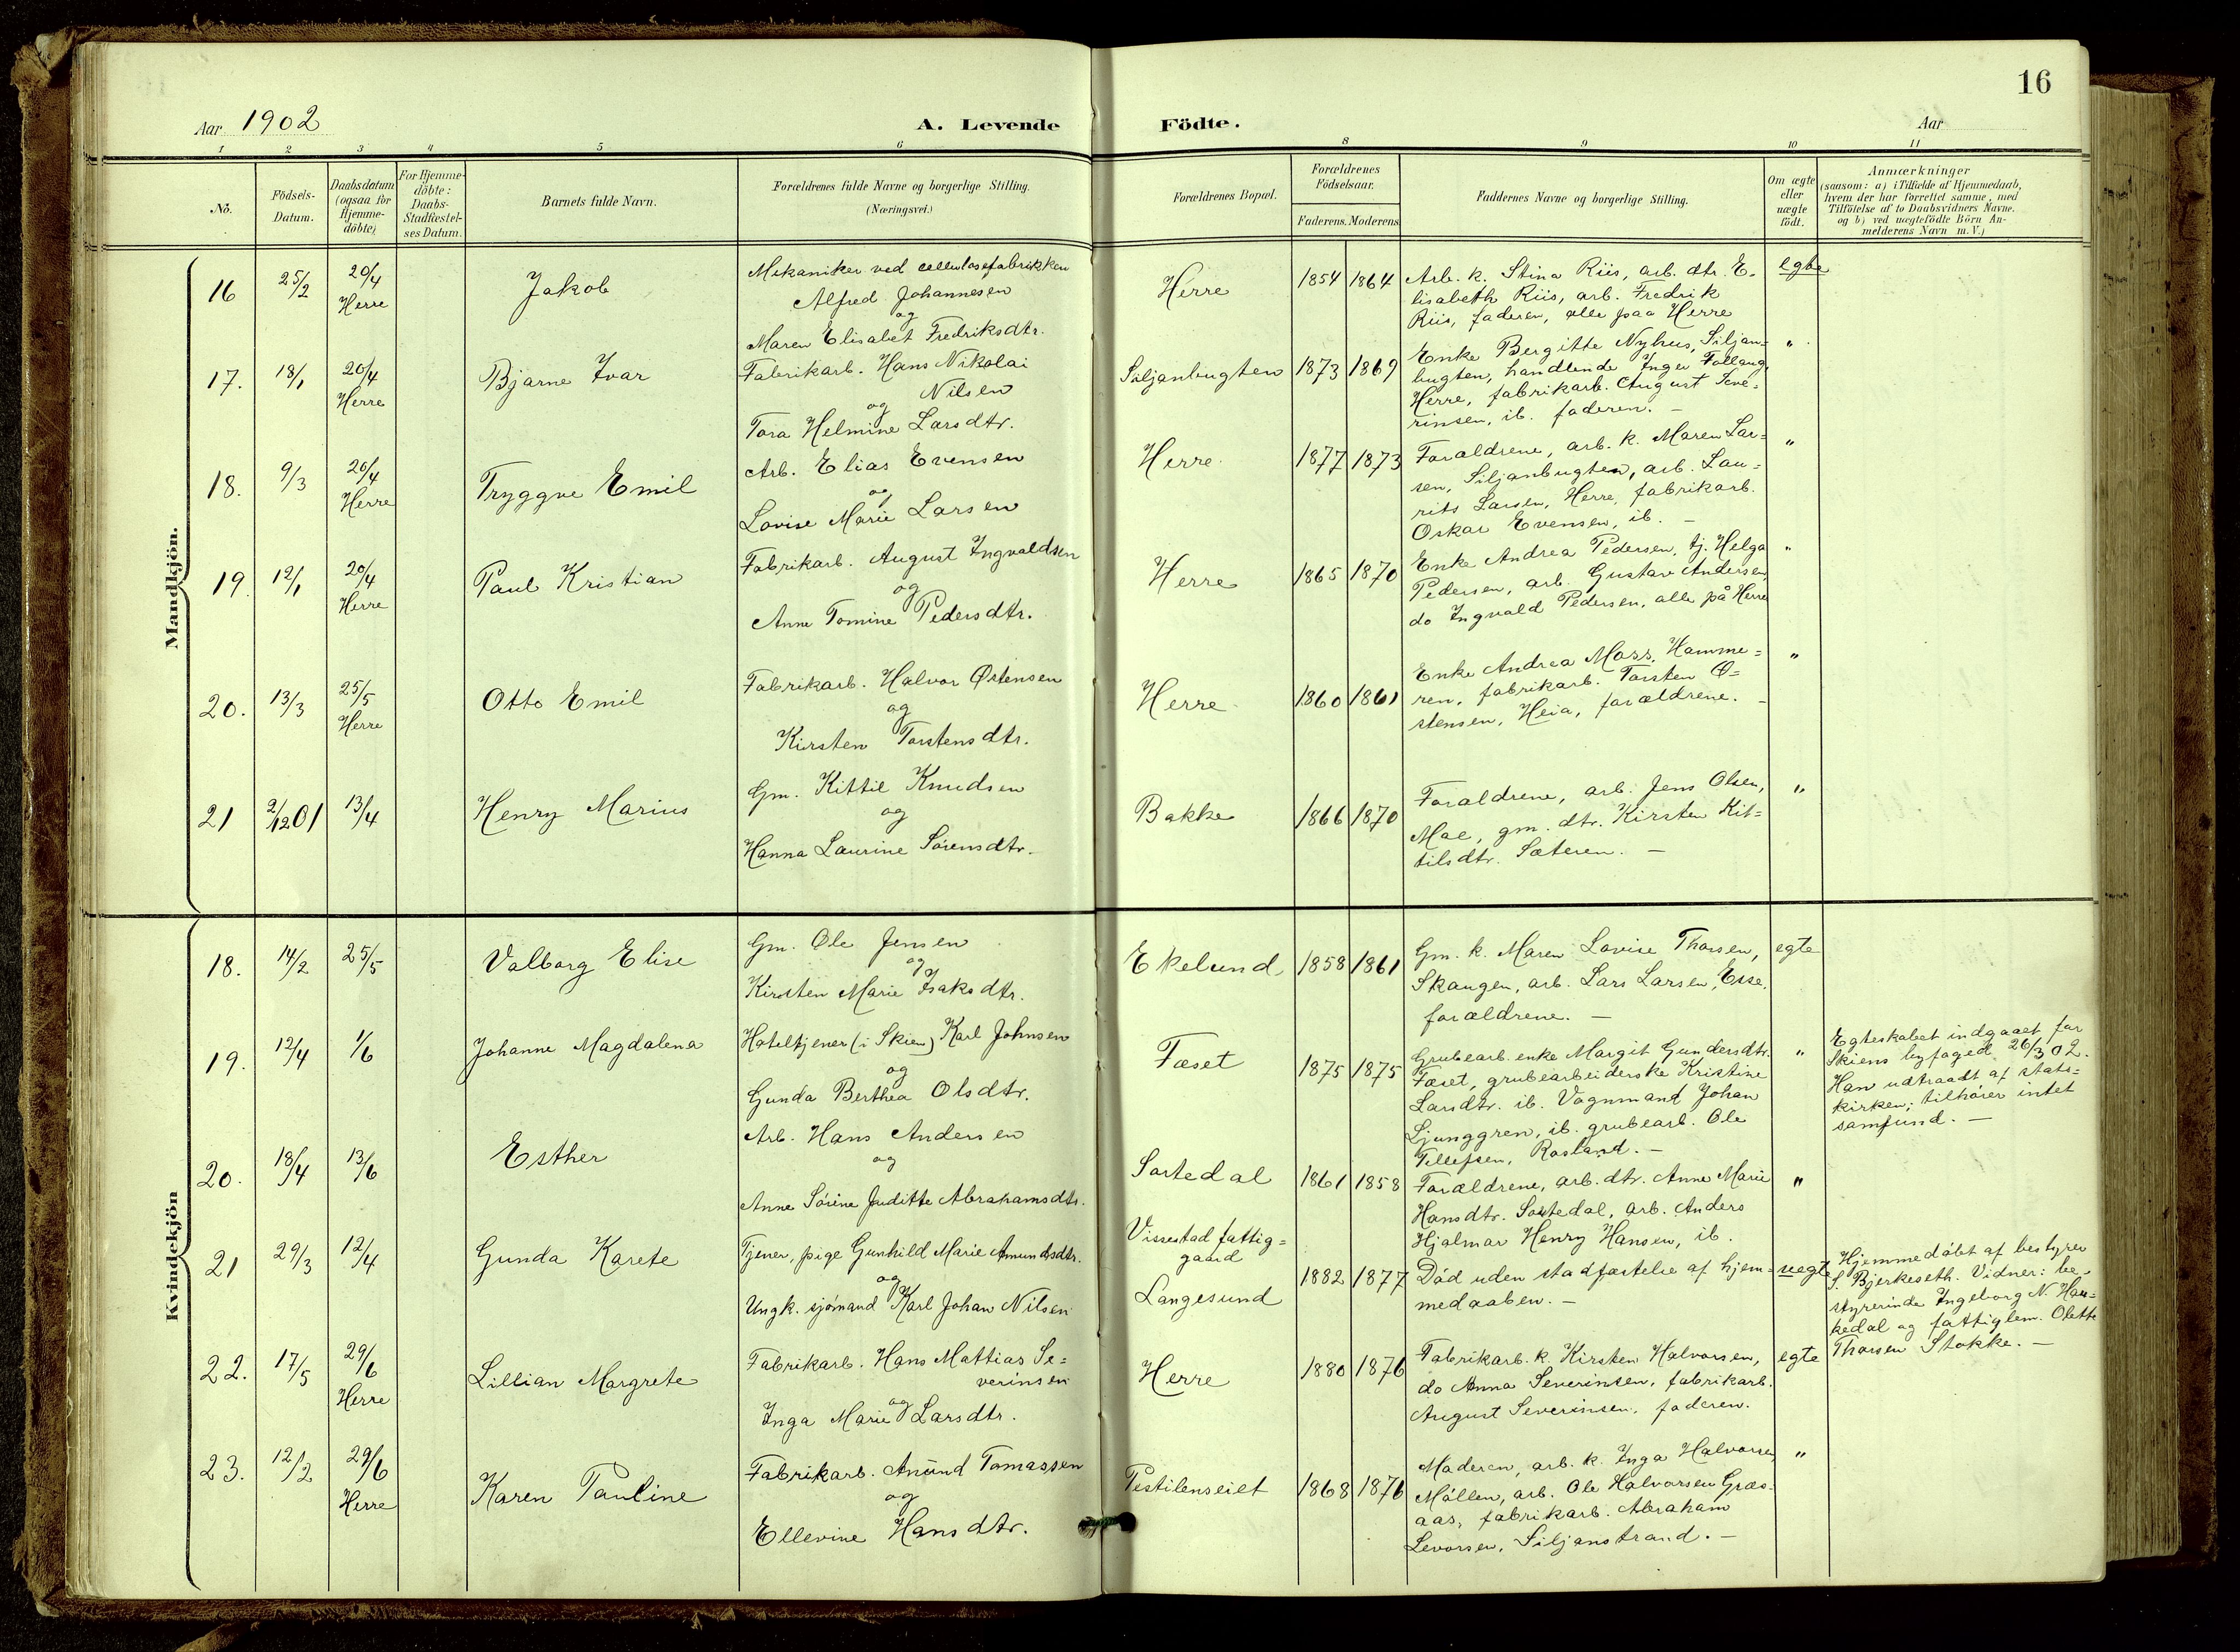 16
Aar 1902
A. Levende
Födte.
Aar
1
2
3
4
5
6
8
9
10
11
No.
Födsels-
Datum.
Daabsdatum
(ogsaa for
Hjemme-
döbte)
For Hjemme-
döbte:
Daabs-
Stadfæstel-
ses Datum.
Barnets fulde Navn.
Forældrenes fulde Navne og borgerlige Stilling.
(Næringsvei.)
Forældrenes Bopæl.
Forældrenes
Födselsaar.
Faderens.
Moderens
Faddernes Navne og borgerlige Stilling.
Om ægte
eller
uægte
födt.
Anmærkninger
(saasom: a) i Tilfælde af Hjemmedaab,
hvem der har forrettet samme, med
Tilföielse af to Daabsvidners Navne.
og b) ved uægtefödte Börn An-
melderens Navn m. V.)
Mandkjön.
16
25/2
20/4
Herre
Jakob
Mekaniker ved cellulosefabrikken
Alfred Johannesen
og
Maren Elisabet Fredriksdtr.
Herre
1854
1864
Arb. k. Stina Riis, arb. dtr. E-
lisabeth Riis, arb. Fredrik
Riis, faderen, alle paa Herre
egte
17.
18/1
20/4
Herre
Bjarne Ivar
Fabrikarb. Hans Nikolai
Nilsen
og
Tora Helmine Larsdtr.
Siljanbugten
1873
1869
Enke Bergitte Nyhus, Siljan-
bugten, handlende Inger
Herre, fabrikarb. August Seve-
rinsen, ib. faderen. -
"
18.
9/3
20/4
Herre
Tryggve Emil
Arb. Elias Evensen
og
Lovise Marie Larsen
Herre
1877
1873
Forældrene, arb. k. Maren Lar-
sen, Siljanbugten, arb. Lau-
rits Larsen, Herre, fabrikarb.
Oskar Evensen, ib. -
"
19
12/1
20/4
Herre
Paul Kristian
Fabrikarb. August Ingvaldsen
og
Anne Tomine Pedersdtr.
Herre
1865
1870
Enke Andrea Pedersen, tj. Helga
Pedersen, arb. Gustav Andersen,
do Ingvald Pedersen, alle på Herre
"
20.
13/3
25/5
Herre
Otto Emil
Fabrikarb. Halvor Østensen
og
Kirsten Torstensdtr.
Herre
1860
1861
Enke Andrea Moss, Hamme=
ren, fabrikarb. Torsten Ø=
stensen, Heia, forældrene. -
"
21
2/12 01
13/4
Henry Marius
Gm. Kittil Knudsen
og
Hanna Laurine Sörensdtr.
Bakke
1866
1870
Forældrene, arb. Jens Olsen,
Mae, gm. dtr. Kirsten Kit=
tilsdtr. Sæteren. -
"
Kvindekjön
18.
14/2
25/5
Valborg Elise
Gm. Ole Jensen
og
Kirsten Marie Isaksdtr.
Ekelund
1858
1861
Gm. k. Maren Lovise Thorsen,
Skaugen, arb. Lars Larsen,
forældrene. -
egte
19.
12/4
1/6
Johanne Magdalena
Hoteltjener (i Skien) Karl Johnsen
og
Gunda Berthea Olsdtr.
Fæset
1875
1875
Grubearb. enke Margit Gundersdtr.
Fæset, grubearbeiderske Kristine
Larsdtr. ib. Vognmand Johan
Ljunggren, ib. grubearb. Ole
Tellefsen, Rosland. -
"
Egteskabet indgaaet for
Skiens byfoged 26/3 02.
Han udtraadt af stats=
kirken; tilhörer intet
samfund. -
20.
18/4
13/6
Esther
Arb. Hans Andersen
og
Anne Sörine Juditte Abrahamsdtr.
Sortedal
1861
1858
Forældrene, arb. dtr. Anne Marie
Hansdtr. Sortedal, arb. Anders
Hjalmar Henry Hansen, ib.
"
21
29/3
12/4
Gunda Karete
Tjener, pige Gunhild Marie Amundsdtr.
og
Ungk. sjömand Karl Johan Nilsen
Vissestad fattig=
gaard
Langesund
1882
1877
Död uden stadfæstelse af hjem-
medaaben. -
uegte
Hjemmedöbt af bestyrer
S. Bjerkeseth. Vidner: be-
styrerinde Ingeborg N. Hau-
kedal og fattiglem. Olette
Thorsen Stokke. -
22.
17/5
29/6
Herre
Lillian Margrete
Fabrikarb. Hans Mattias Se=
verinsen
og
Inga Marie Larsdtr.
Herre
1880
1876
Fabrikarb. k. Kirsten Halvorsen,
do Anna Severinsen, fabrikarb.
August Severinsen, faderen.
egte
23.
12/2
29/6
Herre
Karen Pauline
Fabrikarb. Anund Tomassen
og
Ellevine Hansdtr.
Pestilenseiet
1868
1876
Moderen, arb. k. Inga Halvorsen
Möllen, arb. Ole Halvorsen Græs-
aas, fabrikarb. Abraham
Levorsen, Siljanstrand. -
"